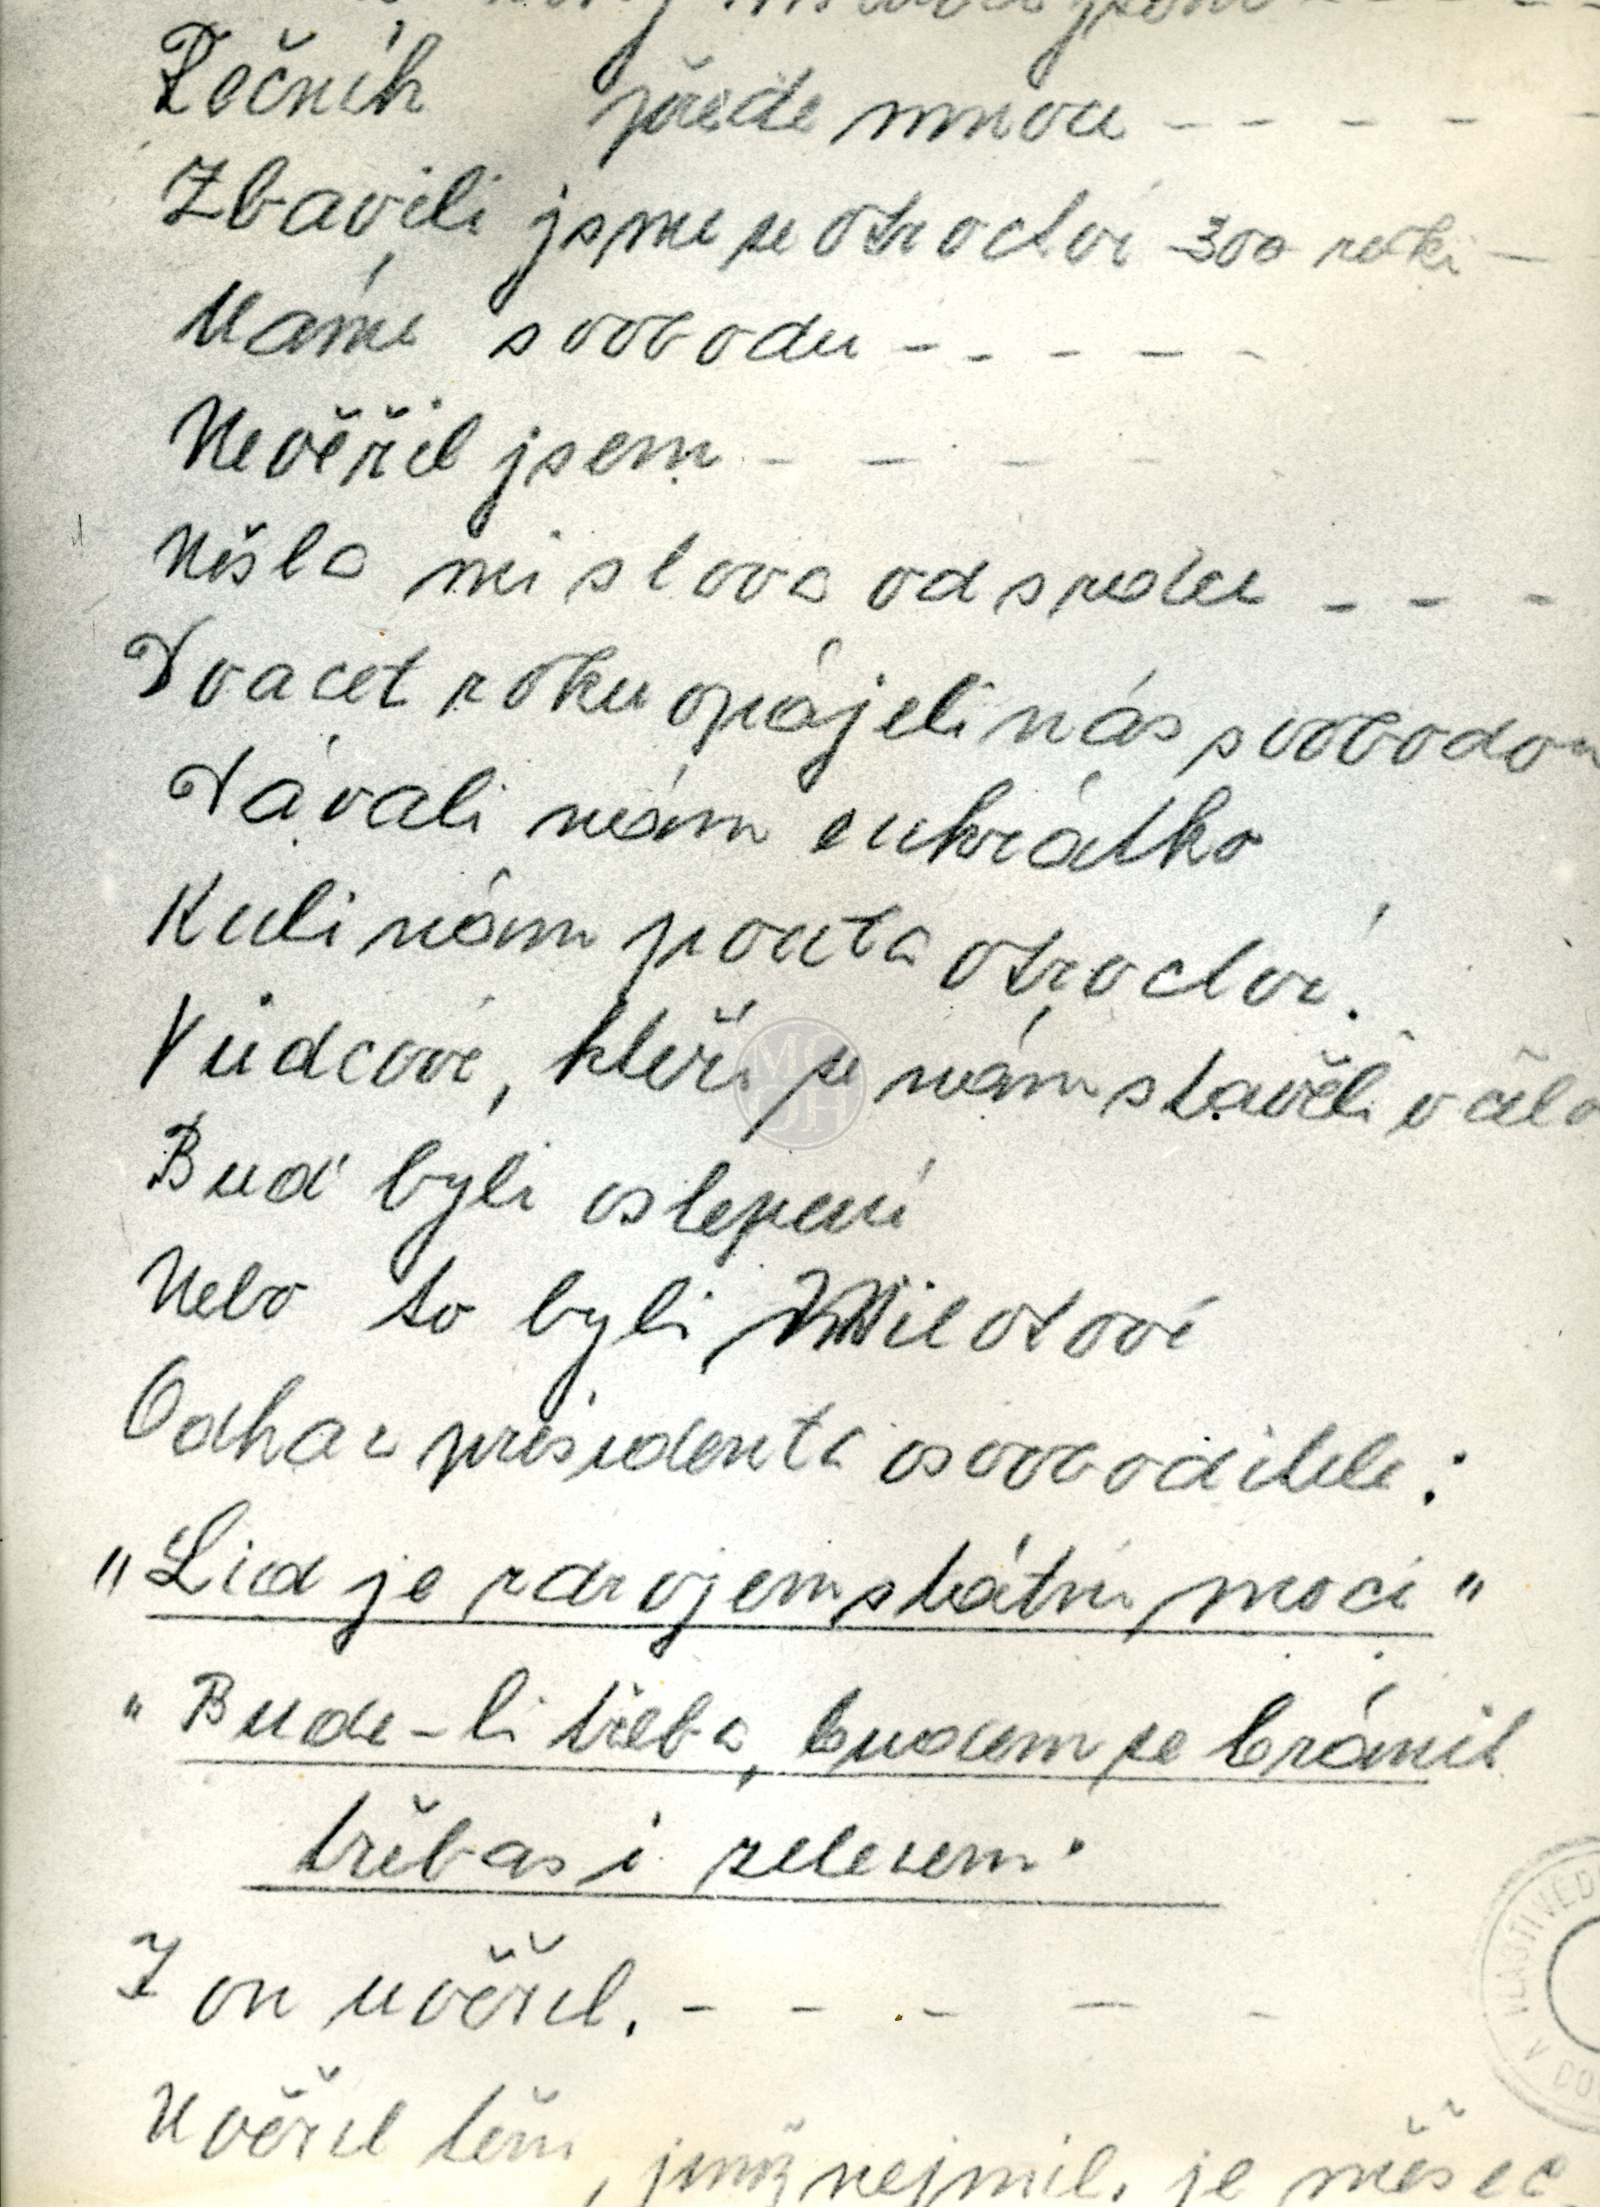 Řečník přede mnou - - - - - -
Zbavili jsme se otroctví 300 roků -
Máme svobodu - - - - -
Nevěřil jsem - - - -
Nešla mi slova od srdce - - -
Dvacet roku opájeli nás svobodou
Dávali nám cukrátko
Kuli nám pouta otroctví.
Vůdcové, kteří se nám stavěli v čelo
Buď byli oslepeni
Nebo to byli Vilotové
Odkaz presidenta osvoboditele:
„Lid je zdrojem státní moci"
"Bude-li třeba, budem se bránit
třebas i zelezem.
I on uvěřil. - - - - -
Uvěřil těm, jimž nejmil. je měšec
MS DJH
VLASTIVĚD
V DO